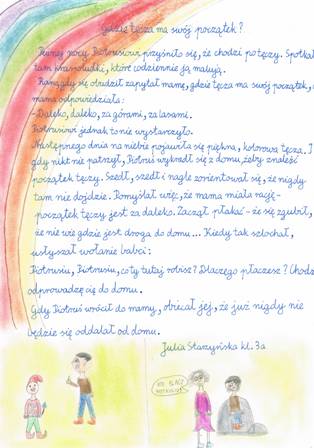 Gdzie tęcza ma swój początek?
Pewnej nocy Piotrusiowi przyśniło się, że chodzi po tęczy. Spotkał
tam krasnoludki, które codziennie ją malują.
Rano gdy się obudził zapytał mamę, gdzie tęcza ma swój początek,
mama odpowiedziała:
- Daleko, daleko, za górami, za lasami.
Piotrusiowi jednak to nie wystarczyło.
Następnego dnia na niebie pojawiła się piękna, kolorowa tęcza. I
gdy nikt nie patrzył, Piotruś wykradł się z domu, żeby znaleść
początek tęczy. Szedł, szedł i nagle zorientował się, że nigdy
tam nie dojdzie. Pomyślał więc, że mama miała rację -
początek tęczy jest za daleko. Zaczął płakać - że się zgubił,
że nie wie gdzie jest droga do domu... Kiedy tak szlochał,
usłyszał wołanie babci:
Piotrusiu, Piotrusiu, co ty tutaj robisz? Dlaczego płaczesz? Chodź
odprowadzę cię do domu.
Gdy Piotruś wrócił do mamy, obiecał jej, że już nigdy nie
będzie się oddalał od domu.
Julia Starzyńska kl. 3a
NIE PŁACZ